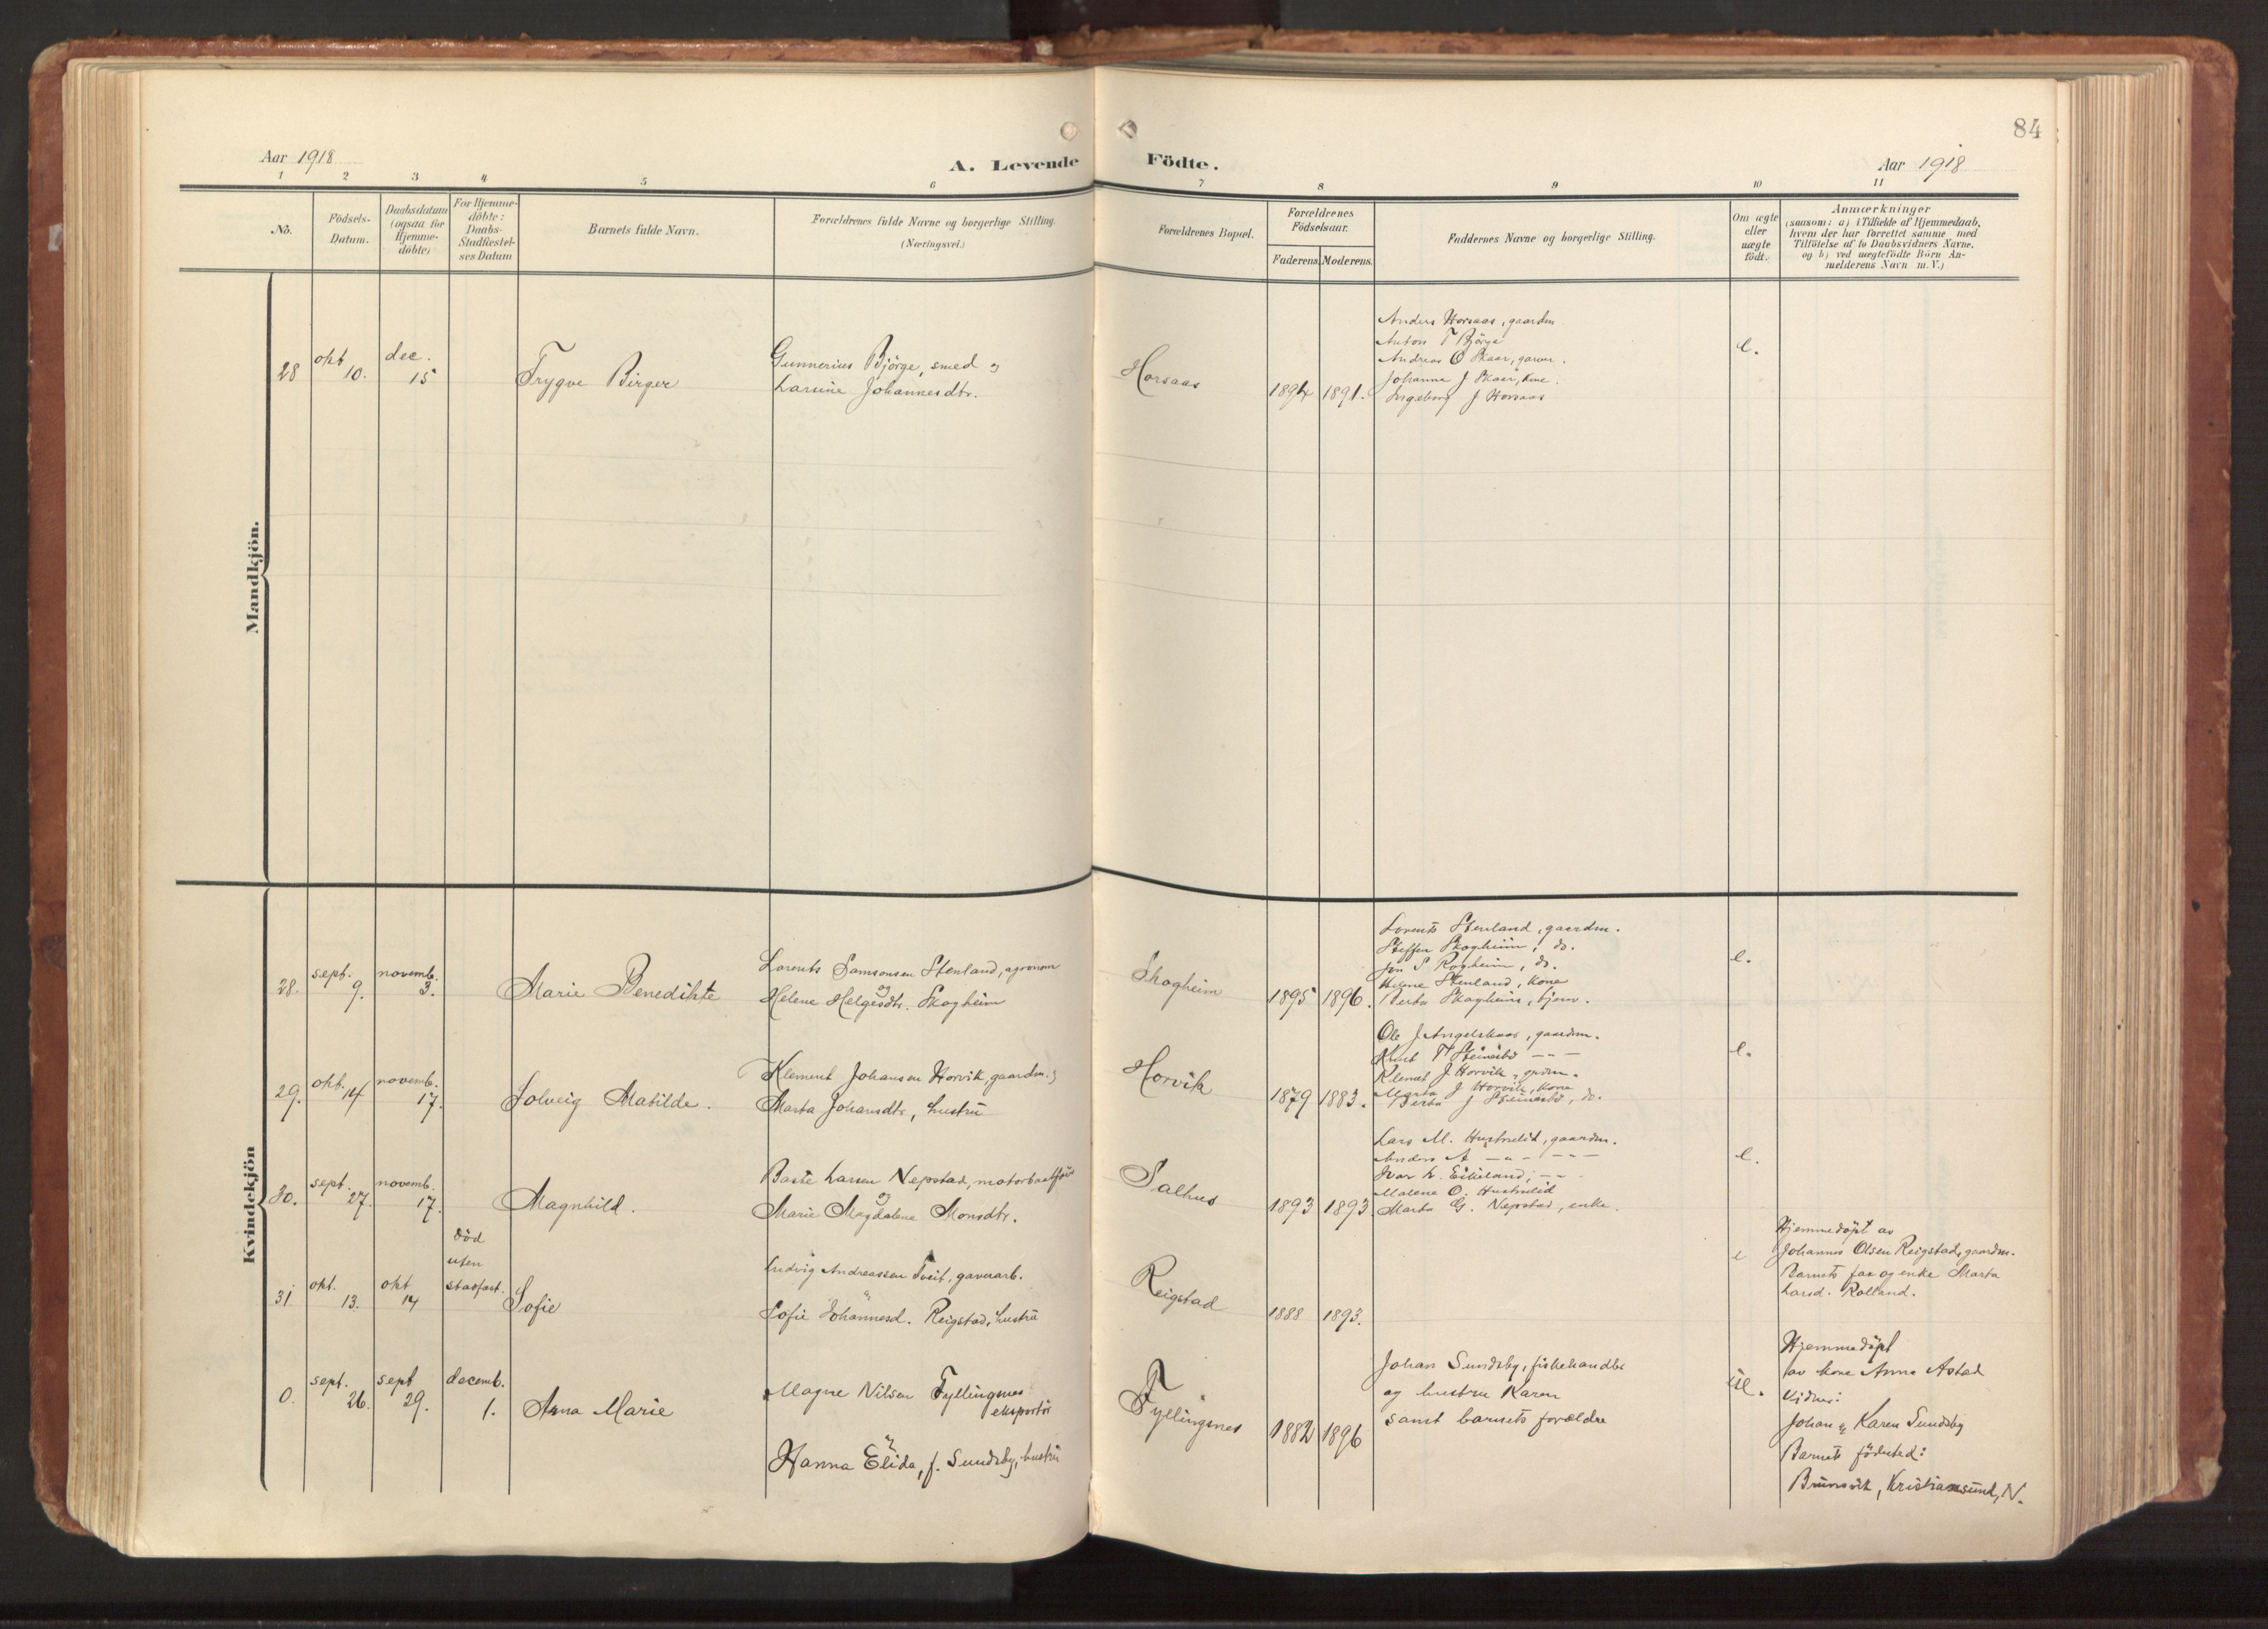 84
Aar 1918
A. Levende Födte.
Aar 1918
1 2 3 4 5 6 7 8 9 10 11
No.
Födsels-
Datum.
Daabsdatum
(ogsaa for
Hjemme-
döbte)
For Hjemme-
döbte:
Daabs-
Stadfæstel-
ses Datum
Barnets fulde Navn.
Forældrenes fulde Navne og borgerlige Stilling.
(Næringsvei.)
Forældrenes Bopæl.
Forældrenes
Födselsaar.
Faderens. Moderens.
Faddernes Navne og borgerlige Stilling.
Om ægte
eller
uægte
födt.
Anmærkninger
(saasom: a) i Tilfælde af Hjemmedaab,
hvem der har forrettet samme med
Tilföielse af to Daabsvidners Navne.
og b) ved uægtefödte Börn An-
melderens Navn m. V.)
Mandkjön.
28
okt
10.
dec.
15
Trygve Birger
Gunnerius Björge, smed og
Larsine Johannesdtr.
Horsaas
1894
1891.
Anders Horsaas, gaardm
Anton T Björge
Andreas O Skaar, garver.
Johanna J Skaar, kone.
Ingeborg J Horsaas
e.
Kvindekjön
28.
sept.
9.
novemb.
3.
Marie Benedikte
Lorents Samsonsen Stenland, agronom
og
Helene Helgesdtr. Skogheim
Skogheim
1895
1896.
Lorents Stenland, gaardm.
Steffen Skogheim, do.
Jon S Rogheim, do.
Helene Stenland, kone
Berta Skogheim, tjen.
e.
29.
okt.
14
novemb.
17.
Solveig Matilde.
Klement Johansen Horvik, gaardm. og
Marta Johansdtr, hustru
Horvik
1879
1883.
Ole J Angelskaar, gaardm.
Knut T Steinsbö – – –
Klemet J Horvik, grdm.
Marta J Horvik, kone
Berta J Steinsbö, do.
e.
30.
sept.
27.
novemb.
17.
Magnhild.
Baste Larsen Nepstad, motorbaatförer
og
Marie Magdalena Monsdtr.
Salhus
1893
1893
Lars M. Hustrulid, gaardm.
Anders A – – – – –
Ivar K. Eikeland, – –
Malene O. Hustrulid
Marta G. Nepstad, enke.
e.
31
okt.
13.
okt
14
död
uten
stadfæst.
Sofie
Ludvig Andreassen Tveit, gaverarb.
og
Sofie Johannesd. Reigstad, hustru
Reigstad
1888
1893.
e
Hjemmedöpt av
Johannes Olsen Reigstad, gaardm.
Barnets far og enke Marta
Larsd. Rolland.
0.
sept.
26.
sept
29.
decemb.
1.
Anna Marie
Magne Nilsen Fyllingsnes
eksportör
og
Hanna Elida, f. Sundsby, hustru
Fyllingsnes
1882
1896
Johan Sundsby, fiskehandler
og hustru Karen
samt barnets forældre
e.
Hjemmedöpt
av kone Anna Astad
Vidner:
Johan og Karen Sundsby
Barnets födested:
Brunsvik, Kristiansund, N.